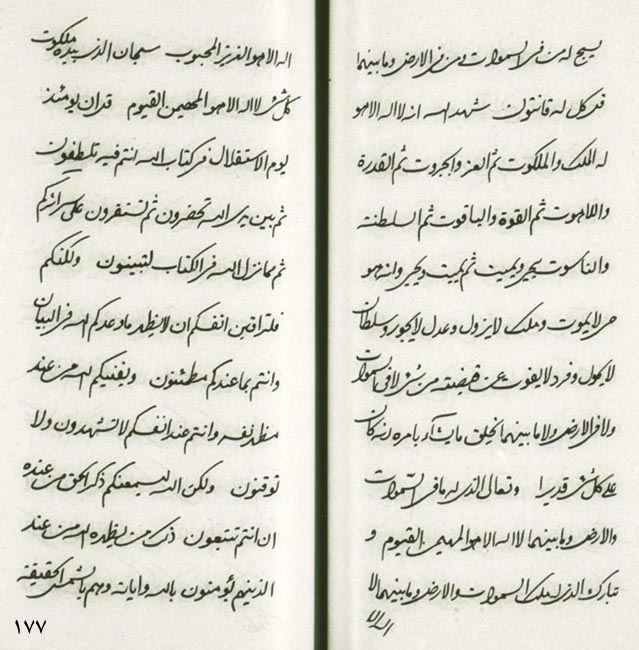 يسبح له من في السموات و من في الارض و ما بينهما
قل كل له قانتون شهد الله انه لا اله الا هو
له الملك والملكوت ثم العز والجبروت ثم القدرة
واللاهوت ثم القوة والياقوت ثم السلطنة
والناسوت يحيي ويميت ثم يميت ويحيي وانه هو
حي لا يموت وملك لا يزول وعدل لا يجور وسلطان
لا يحول وفرد لا يفوت عن قبضته من شئ لا في السموات
ولا في الارض ولا ما بينهما يخلق ما يشآء بامره انه كان
على كل شئ قديرا وتعالى الذي له ما في السّموات
والارض وما بينهما لا اله الا هو المهيمن القيوم و
تبارك الذي له ملك السموات والارض وما بينهما لا
اله الا هو العزيز المحبوب سبحان الذي بيده ملكوت
كل شئ لا اله الا هو المهيمن القيوم قل ان يومئذ
يوم الاستقلال في كتاب الله انتم فيه تلطفون
ثم بين يدي الله تحضرون ثم تستقرون على سرائركم
ثم مما نزل الله في الكتاب لتبينون ولكنكم
فلتراقبن انفسكم ان لا يظهر ما وعدكم الله في البيان
وانتم بما عندكم مطمئنون ويفنيكم الله من عند
مظهر نفسه وانتم عند انفسكم لا تشهدون ولا
توقنون ولكن الله ليسمعنكم ذكر الحق من عنده
ان انتم تتبعون ذلك من يظهره الله من عند
الذينهم يؤمنون بالله واياته وهم بالشمس الحقيقة
١٧٧